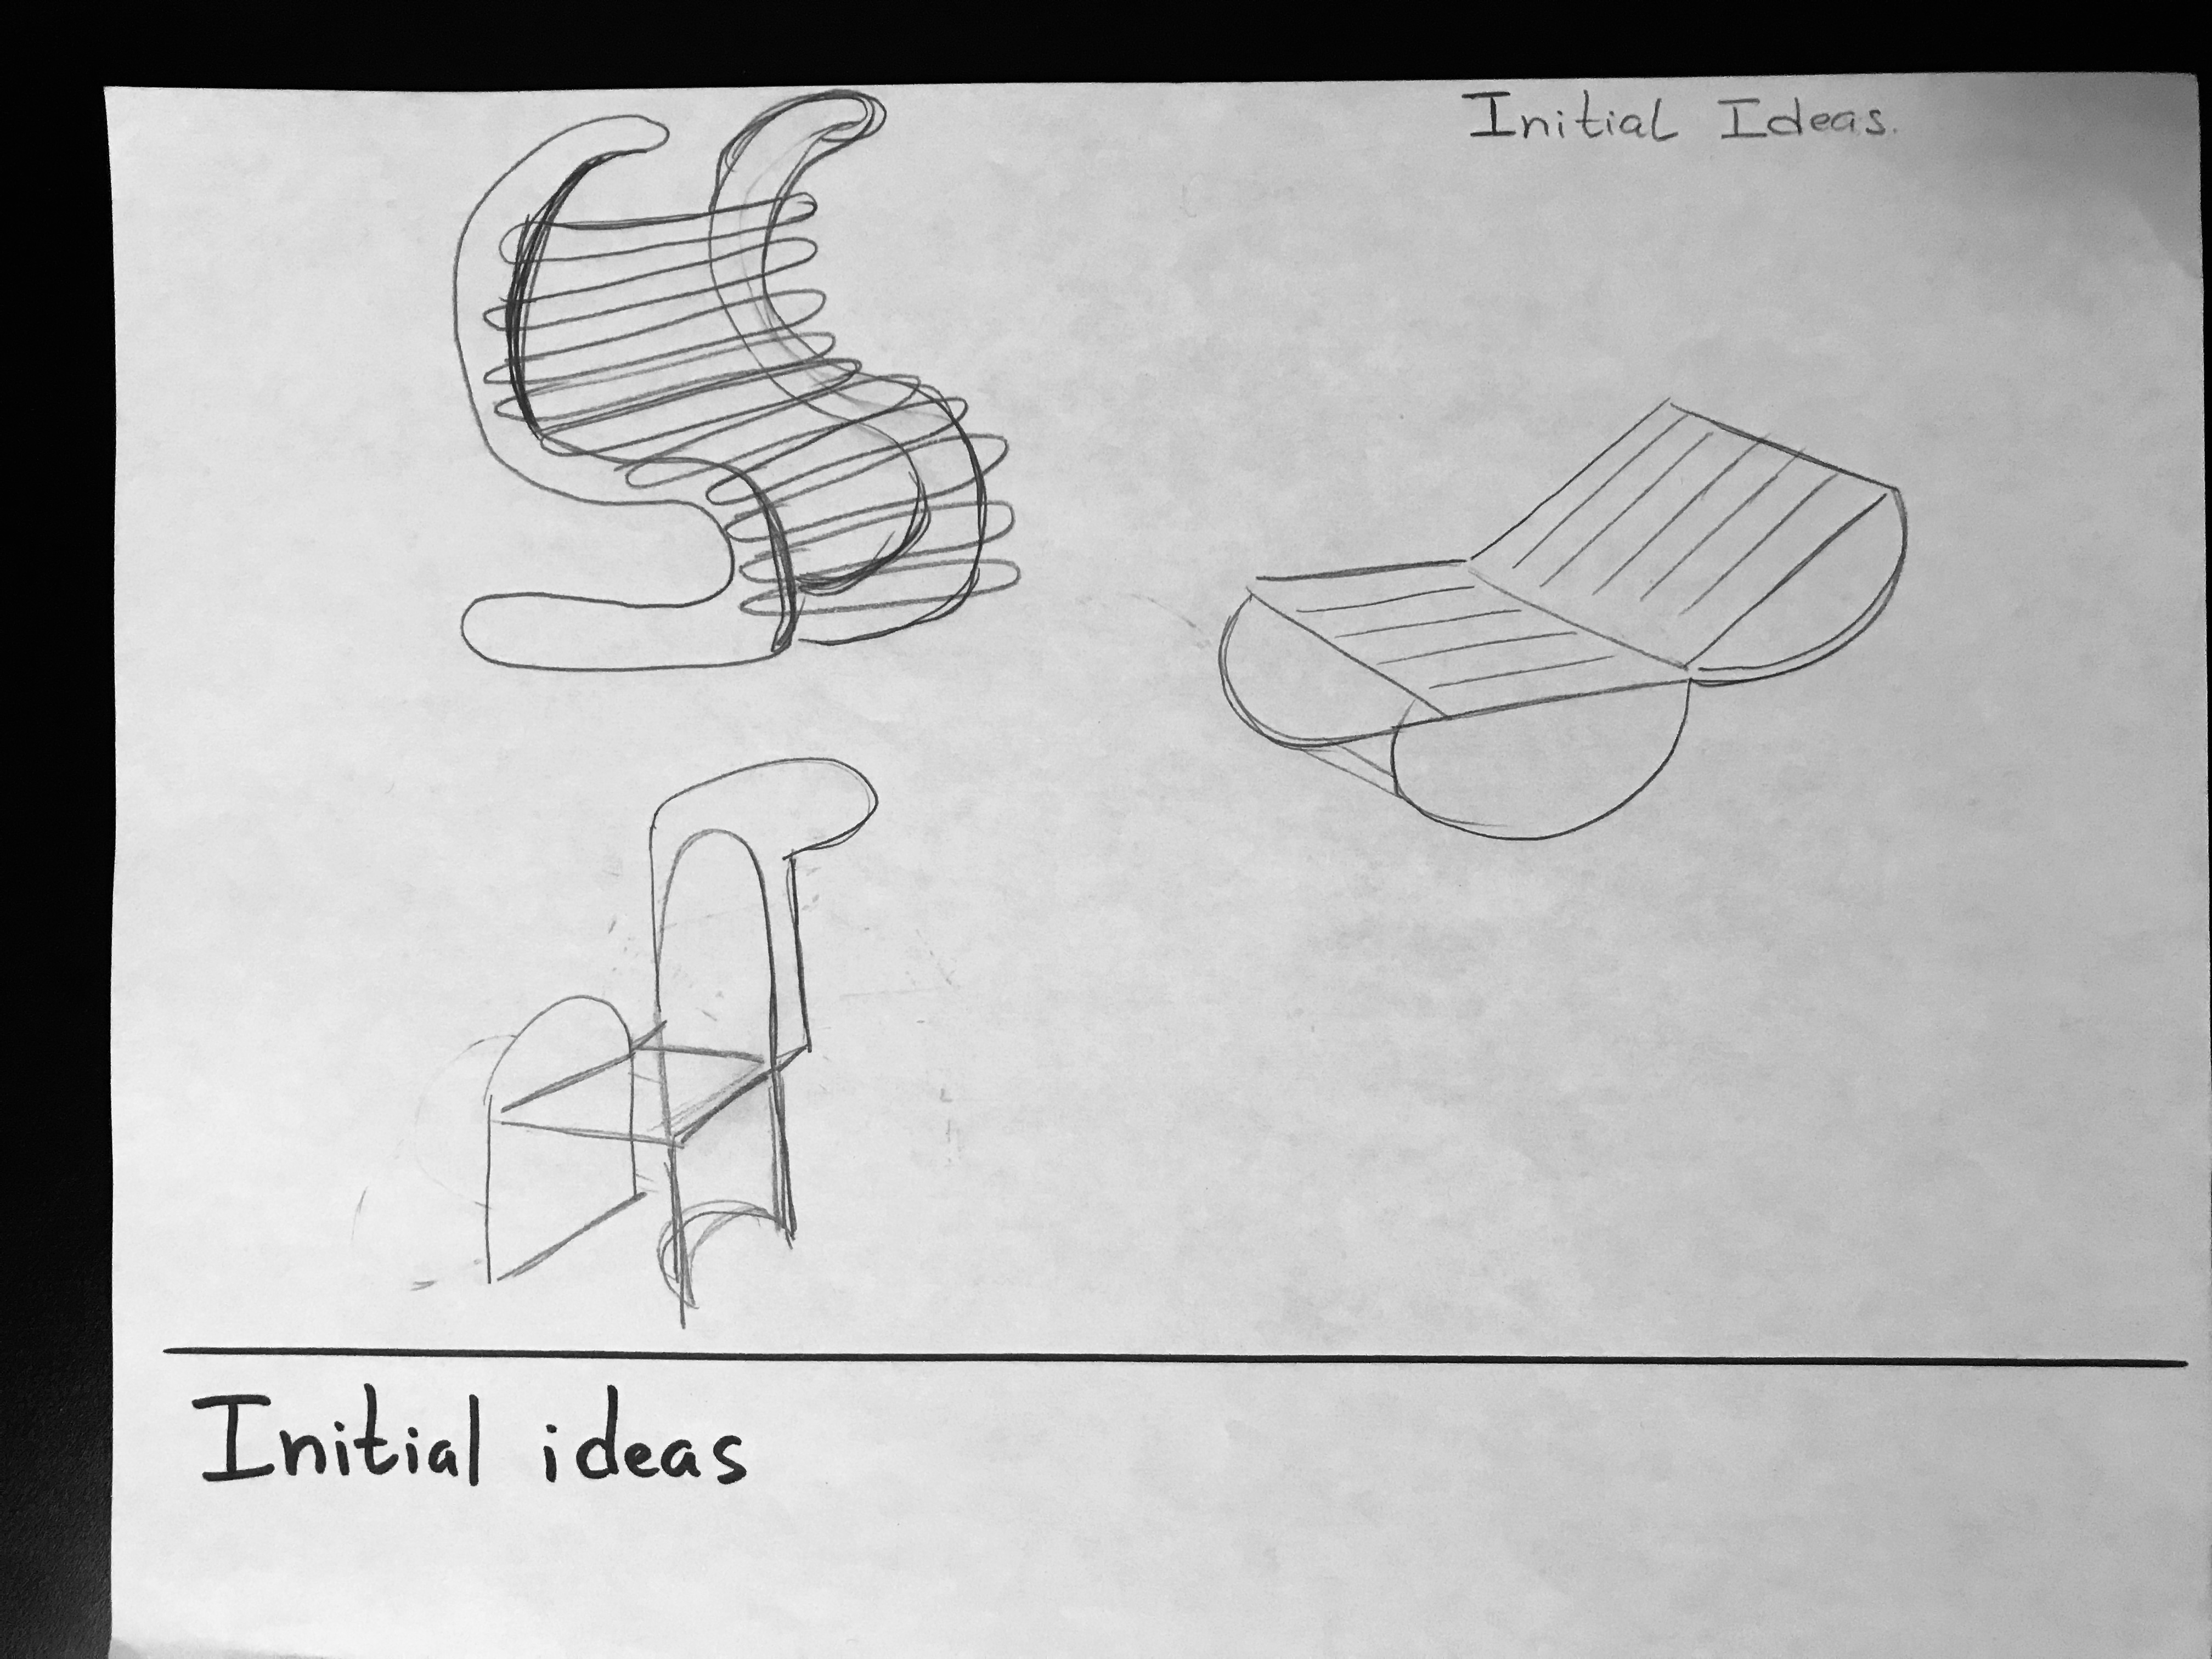 Initial Ideas.
Initial ideas